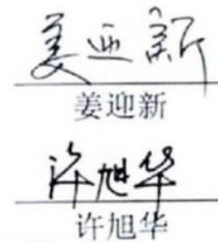 姜迎新
姜迎新
许旭华
许旭华